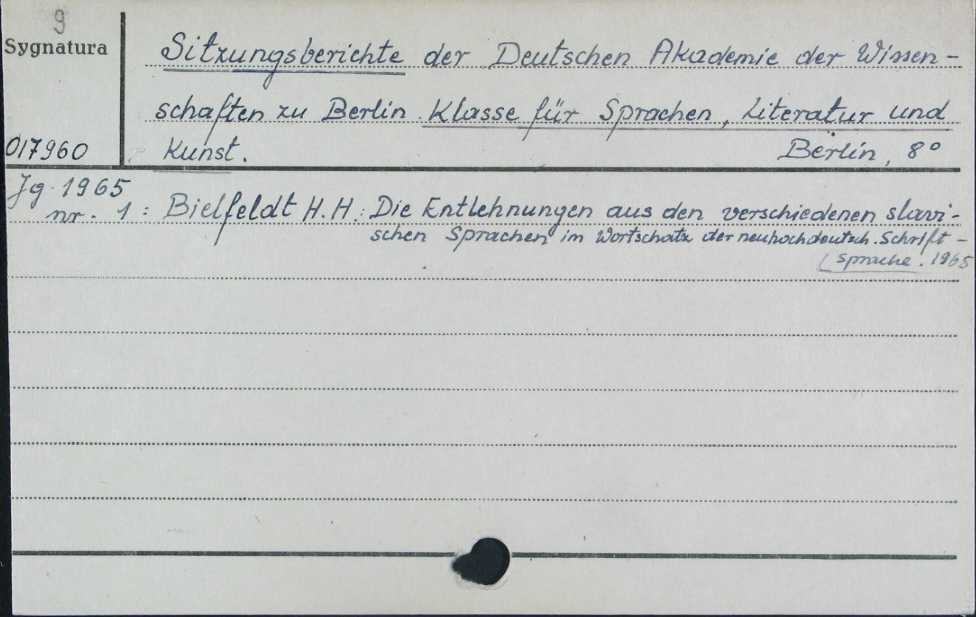 9
Sygnatura
Sitzungsberichte der Deutschen Akademie der Wissen-
schaften zu Berlin. Klasse für Sprachen, Literatur und
017960
Kunst. Berlin, 8°
Jg. 1965
nr. 1: Bielfeldt H.H.: Die Entlehnungen aus den verschiedenen slavi-
schen Sprachen im Wortschatz der neuhochdeutsch. Schrift-
sprache. 1965